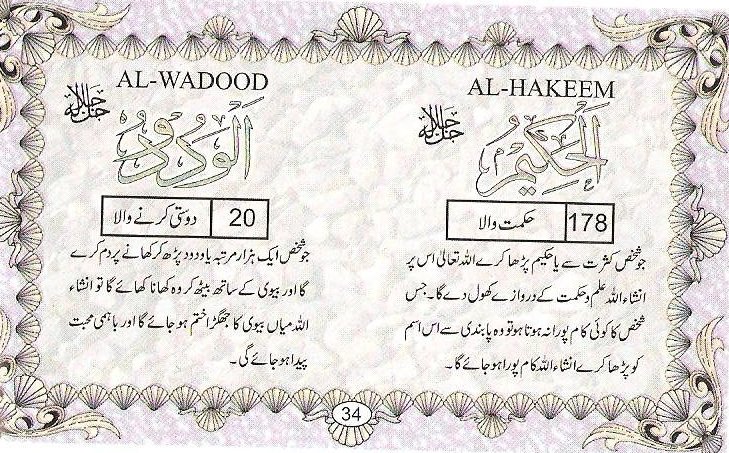 AL-HAKEEM
جل جلالہ
الحکیم
178 حکمت والا
جو شخص کثرت سے یا حکیم پڑھا کرے اللہ تعالیٰ اس پر
انشاء اللہ علم و حکمت کے دروازے کھول دے گا۔ جس
شخص کا کوئی کام پورا نہ ہوتا ہو تو وہ پابندی سے اس اسم
کو پڑھا کرے انشاء اللہ کام پورا ہو جائے گا۔
AL-WADOOD
جل جلالہ
الودود
20 دوستی کرنے والا
جو شخص ایک ہزار مرتبہ یا ودود پڑھ کر کھانے پر دم کرے
گا اور بیوی کے ساتھ بیٹھ کر وہ کھانا کھائے گا تو انشاء
اللہ میاں بیوی کا جھگڑا ختم ہو جائے گا اور باہمی محبت
پیدا ہو جائے گی۔
34